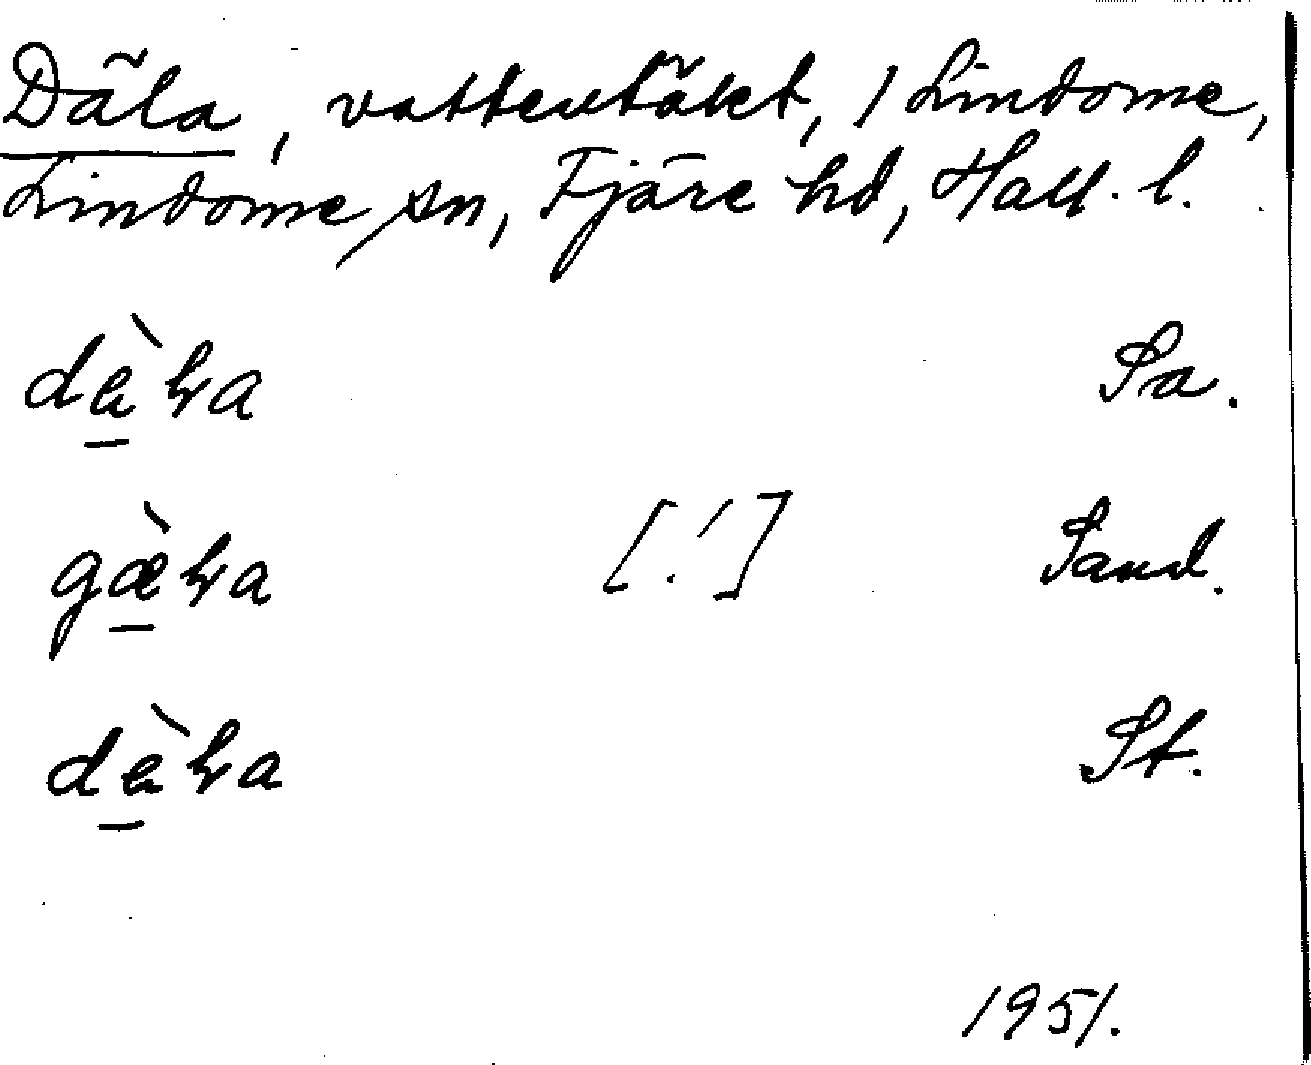 Däla, vattentäkt, i Lindome,
Lindome sn, Fjäre hd, Hall. l.
dæ̠̀ɽa Sa.
gæ̠̀ɽa [!] Sand.
dæ̠̀ɽa St.
1951.